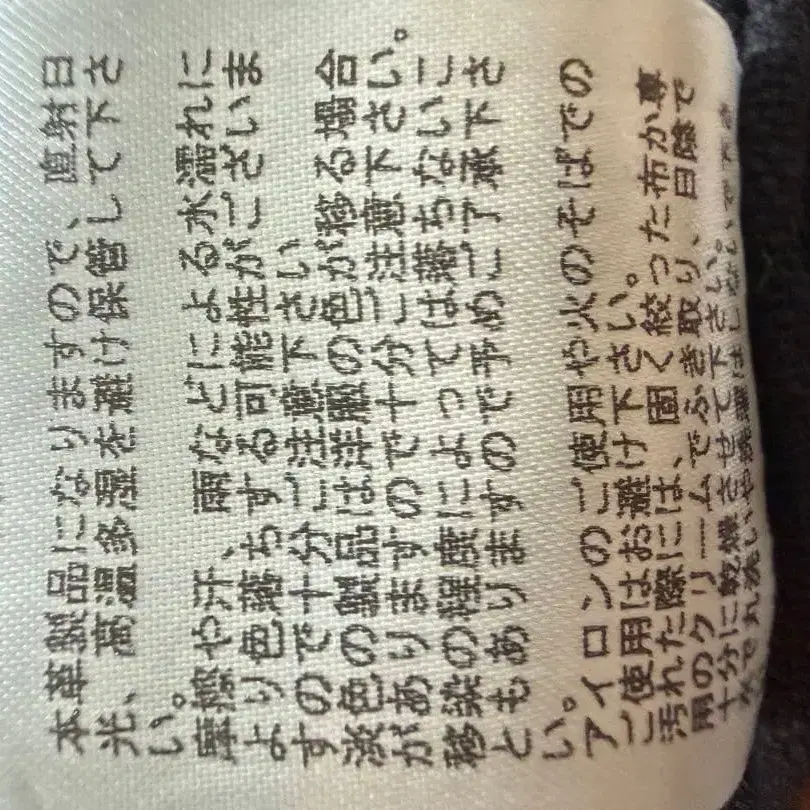 本革製品になりますので、直射日
光、高温多湿を避け保管して下さ
い。
摩擦や汗、雨などによる水濡れに
より色落ちする可能性がございま
すので十分ご注意下さい
淡色の製品は洋服の色が移る場合
がありますので十分ご注意下さい。
移染の程度によっては落ちないこ
ともありますので予めご了承下さ
い。
アイロンのご使用や火のそばでの
ご使用はお避け下さい。
汚れた際には、固く絞った布か専
用のクリームでふき取り、日陰で
十分に乾燥させて下さい。